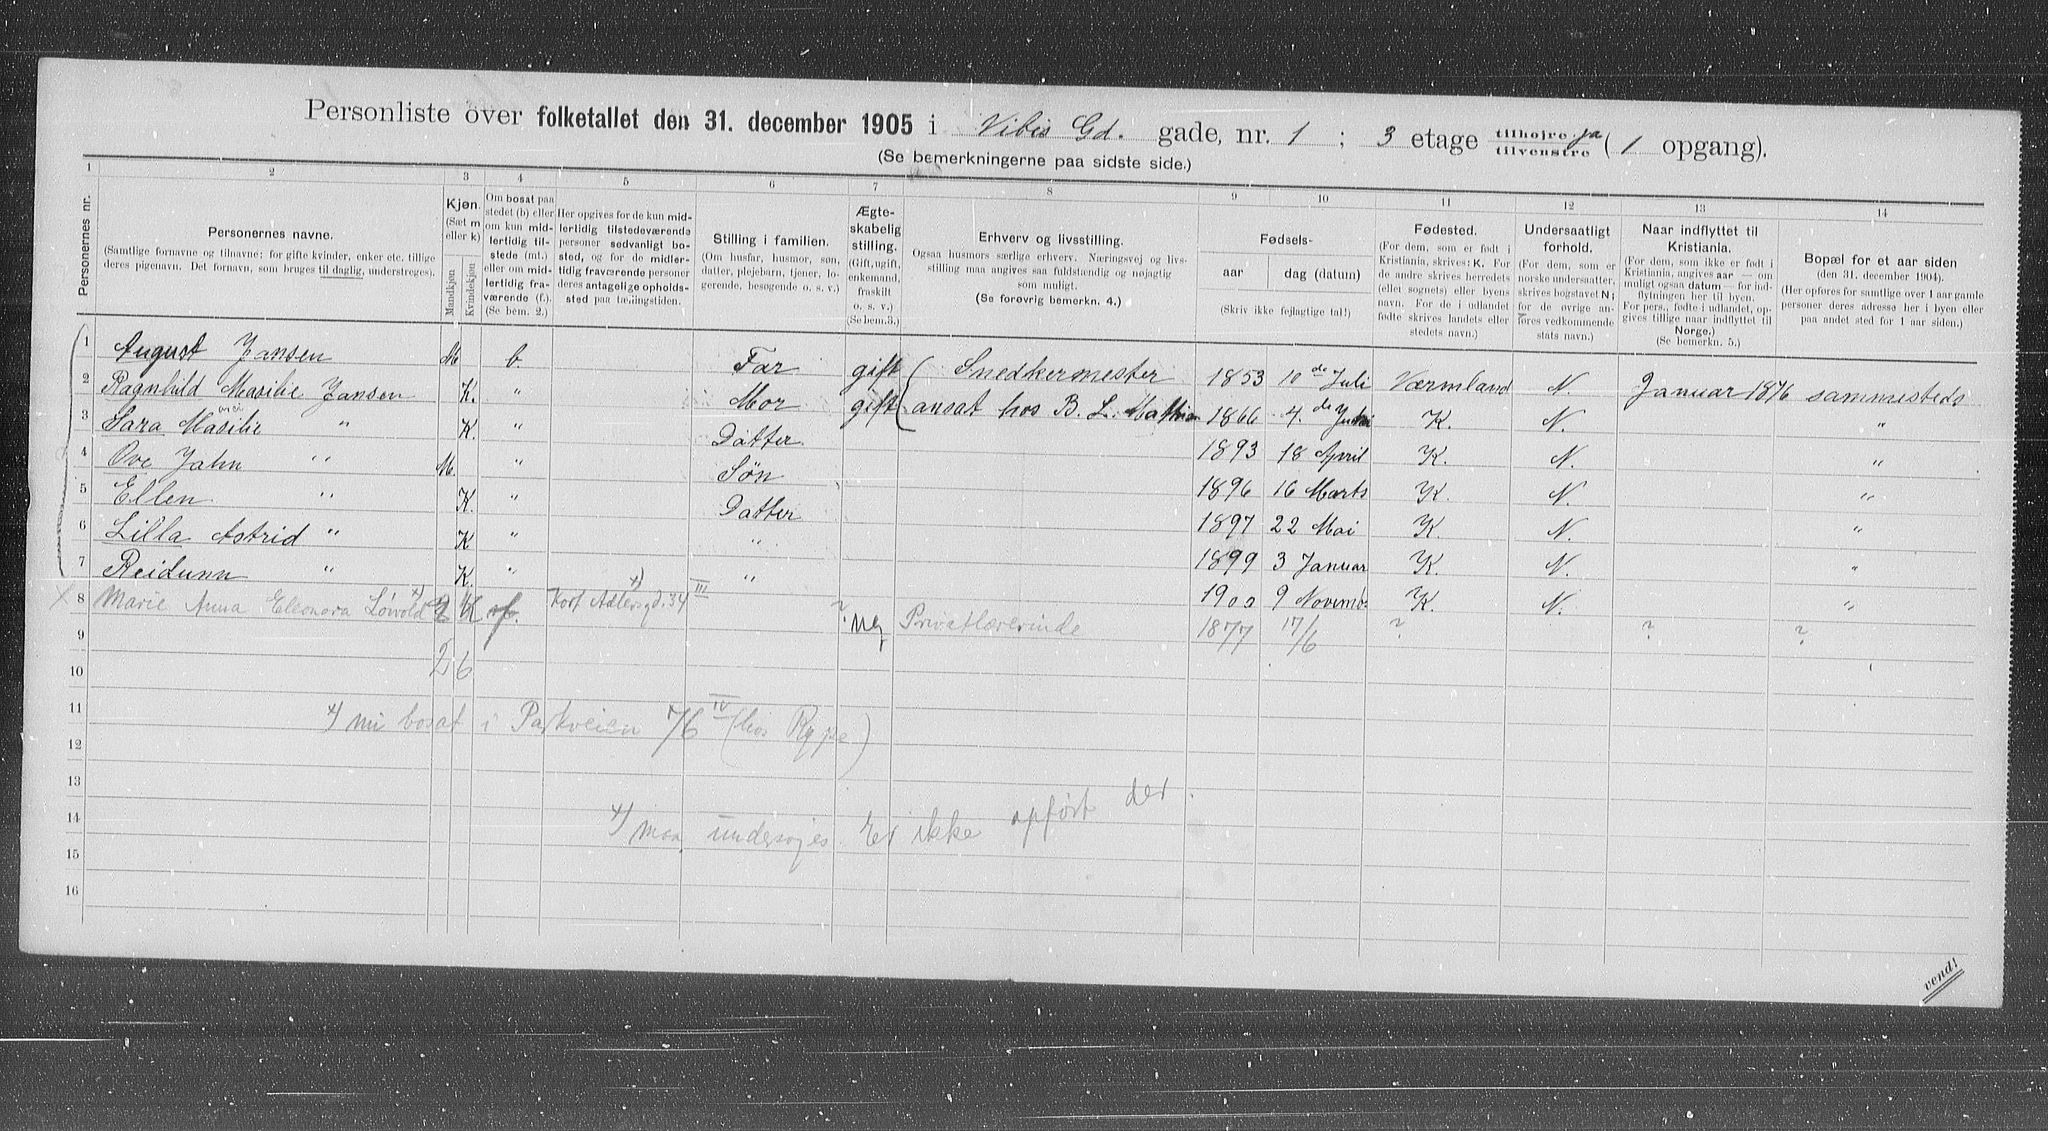 Personliste over folketallet den 31. december 1905 i Vibes Gd. gade, nr. 1 ; 3 etage tilhøjre ja / tilvenstre (1 opgang).
(Se bemerkningerne paa sidste side.)
1 2 3 4 5 6 7 8 9 10 11 12 13 14
Personernes nr.
Personernes navne.
(Samtlige fornavne og tilnavne; for gifte kvinder, enker etc. tillige deres pigenavn. Det fornavn, som bruges til daglig, understreges).
Kjøn.
(Sæt m eller k)
Mandkjøn
Kvindekjøn
Om bosat paa stedet (b) eller om kun midlertidig tilstede (mt.) eller om midlertidig fraværende (f.) (Se bem. 2.)
Her opgives for de kun midlertidig tilstedeværende personer sedvanligt bosted, og for de midlertidig fraværende personer deres antagelige opholdssted paa tællingstiden.
Stilling i familien.
(Om husfar, husmor, søn, datter, plejebarn, tjener, logerende, besøgende o. s. v.)
Ægteskabelig stilling.
(Gift, ugift, enkemand, fraskilt o. s. v.)
(Se bem.3.)
Erhverv og livsstilling.
Ogsaa husmors særlige erhverv. Næringsvej og livsstilling maa angives saa fuldstændig og nøjagtig som muligt.
(Se forøvrig bemerkn. 4.)
Fødsels-
aar
dag (datum)
(Skriv ikke fejlagtige tal!)
Fødested.
(For dem, som er født i Kristiania, skrives: K. For de andre skrives herredets (eller sognets) eller byens navn. For de i udlandet fødte skrives landets eller stedets navn.)
Undersaatligt forhold.
(For dem, som er norske undersaatter, skrives bogstavet N; for de øvrige anføres vedkommende stats navn.)
Naar indflyttet til Kristiania.
(For dem, som ikke er født i Kristiania, angives aar — om muligt ogsaa datum — for indflytningen her til byen. For pers., fødte i udlandet, opgives tillige naar indflyttet til Norge.)
(Se bemerkn. 5.)
Bopæl for et aar siden
(den 31. december 1904).
(Her opføres for samtlige over 1 aar gamle personer deres adresse her i byen eller paa andet sted for 1 aar siden.)
1 August Jansen M b. Far gift Snedkermester 1853 10de Juli Værmland N. Januar 1876 sammesteds
2 Ragnhild Masilie Jansen K. " Mor gift ansat hos B. L. 1866 4.de K. N. "
3 Sara Masilie " K. " Datter 1893 18 April K. N. "
4 Ove Jahn " M. " Søn 1896 16 Marts K. N. "
5 Ellen " K. " Datter 1897 22 Mai K. N. "
6 Lilla Astrid " K " " 1899 3 Januar K. N. "
7 Reidunn " K. " " 1900 9 Novemb. K. N. "
8 Marie Anna Eleonora Løvold x) K Kort Adlersgd. 34 III x) ? ug Privatlærerinde 1877 17/6 ? ? ?
9
2 6
10
11
x) nu bosat i Parkveien 76 IV (hos Rype)
12
13
x) maa undersøjes. Er ikke opført der.
14
15
16
vend!